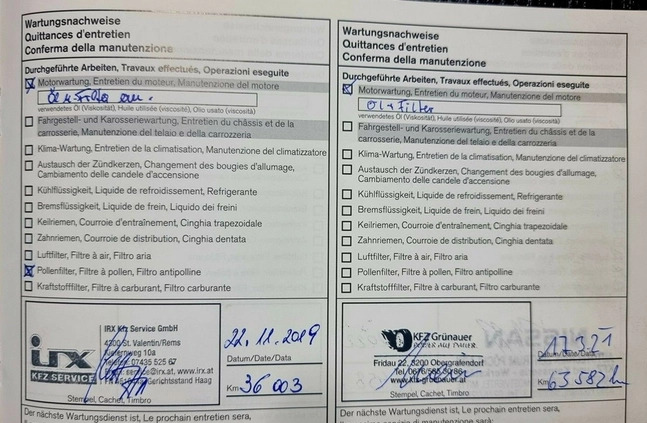 Wartungsnachweise
Quittances d'entretien
Conferma della manutenzione
Durchgeführte Arbeiten, Travaux effectués, Operazioni eseguite
Motorwartung, Entretien du moteur, Manutenzione del motore
Öl u Filter
verwendetes Öl (Viskosität), Huile utilisée (viscosité), Olio usato (viscosità)
Fahrgestell- und Karosseriewartung, Entretien du châssis et de la
carrosserie, Manutenzione del telaio e della carrozzeria
Klima-Wartung, Entretien de la climatisation, Manutenzione del climatizzatore
Austausch der Zündkerzen, Changement des bougies d'allumage,
Cambiamento delle candele d'accensione
Kühlflüssigkeit, Liquide de refroidissement, Refrigerante
Bremsflüssigkeit, Liquide de frein, Liquido dei freini
Keilriemen, Courroie d'entraînement, Cinghia trapezoidale
Zahnriemen, Courroie de distribution, Cinghia dentata
Luftfilter, Filtre à air, Filtro aria
Pollenfilter, Filtre à pollen, Filtro antipolline
Kraftstofffilter, Filtre à carburant, Filtro carburante
irx
KFZ SERVICE
IRX Kfz Service GmbH
4300 St. Valentin/Rems
10a
07435 525 67
service@irx.at, www.irx.at
Gerichtsstand Haag
Stempel, Cachet, Timbro
22.11.2019
Datum/Date/Data
Km 36 003
Der nächste Wartungsdienst ist, Le prochain entretien sera,
Wartungsnachweise
Quittances d'entretien
Conferma della manutenzione
Durchgeführte Arbeiten, Travaux effectués, Operazioni eseguite
Motorwartung, Entretien du moteur, Manutenzione del motore
Öl + Filter
verwendetes Öl (Viskosität), Huile utilisée (viscosité), Olio usato (viscosità)
Fahrgestell- und Karosseriewartung, Entretien du châssis et de la
carrosserie, Manutenzione del telaio e della carrozzeria
Klima-Wartung, Entretien de la climatisation, Manutenzione del climatizzatore
Austausch der Zündkerzen, Changement des bougies d'allumage,
Cambiamento delle candele d'accensione
Kühlflüssigkeit, Liquide de refroidissement, Refrigerante
Bremsflüssigkeit, Liquide de frein, Liquido dei freini
Keilriemen, Courroie d'entraînement, Cinghia trapezoidale
Zahnriemen, Courroie de distribution, Cinghia dentata
Luftfilter, Filtre à air, Filtro aria
Pollenfilter, Filtre à pollen, Filtro antipolline
Kraftstofffilter, Filtre à carburant, Filtro carburante
KFZ Grünauer
Fridau 22, 3200 Obergrafendorf
www.kfz-grünauer.at
Stempel, Cachet, Timbro
Datum/Date/Data
Km 63582
Der nächste Wartungsdienst ist, Le prochain entretien sera,